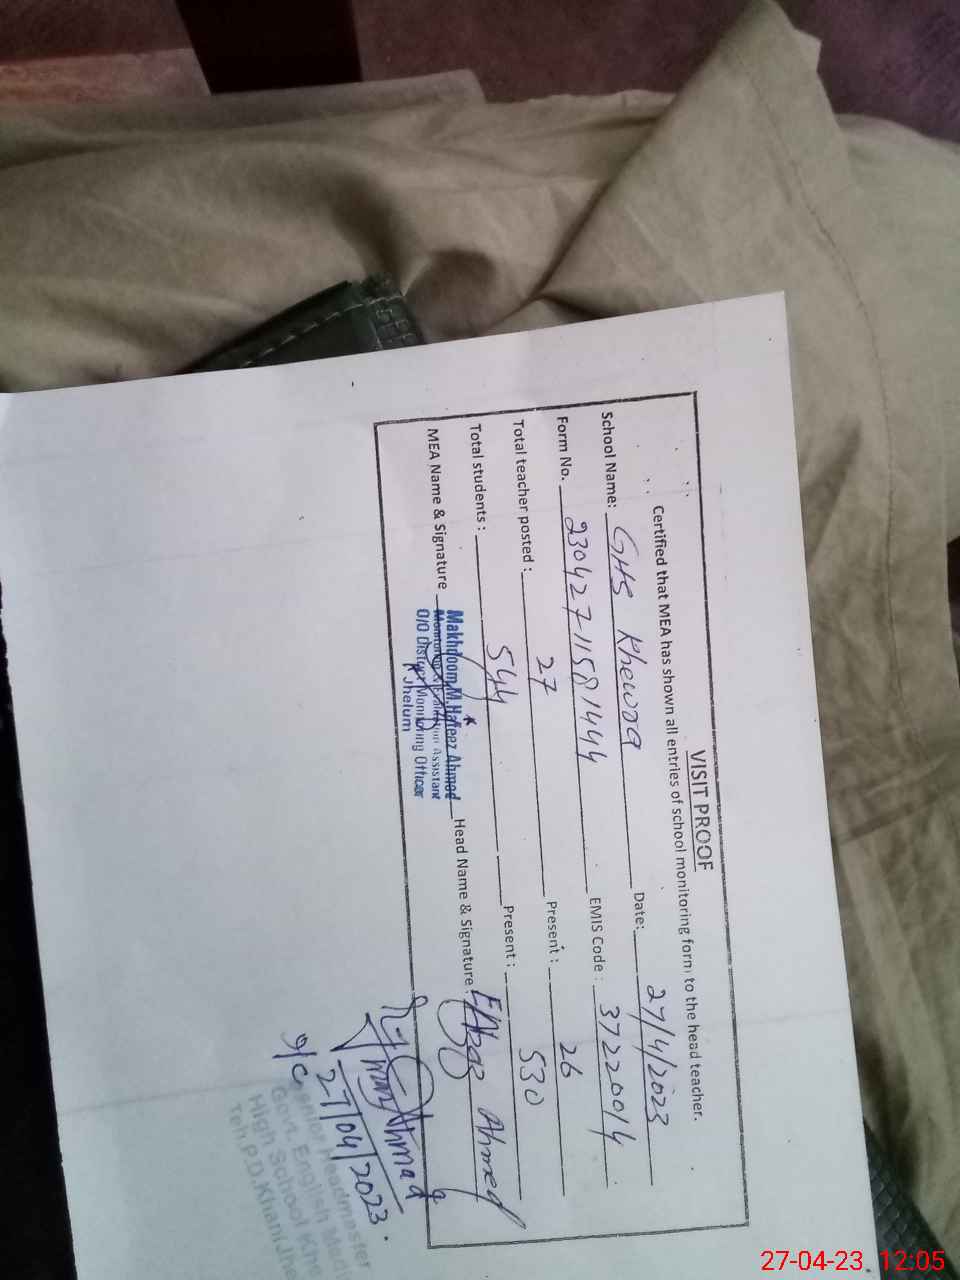 VISIT PROOF
Certified that MEA has shown all entries of school monitoring form to the head teacher.
School Name: GHS Khewra Date: 27/4/2023
Form No. 23042711581444 EMIS Code : 37220014
Total teacher posted : 27 Present : 26
Total students : 544 Present : 530
MEA Name & Signature Makhdoom M.Hafeez Ahmed Head Name & Signature : Ahmed
Monitoring & Evaluation Assistant
O/O District Monitoring Officer
Jhelum
Ahmad
27/04/2023
o/c Senior Headmaster
Govt. English Med
High School Khe
Teh.P.D.Khan(Jhe
27-04-23, 12:05